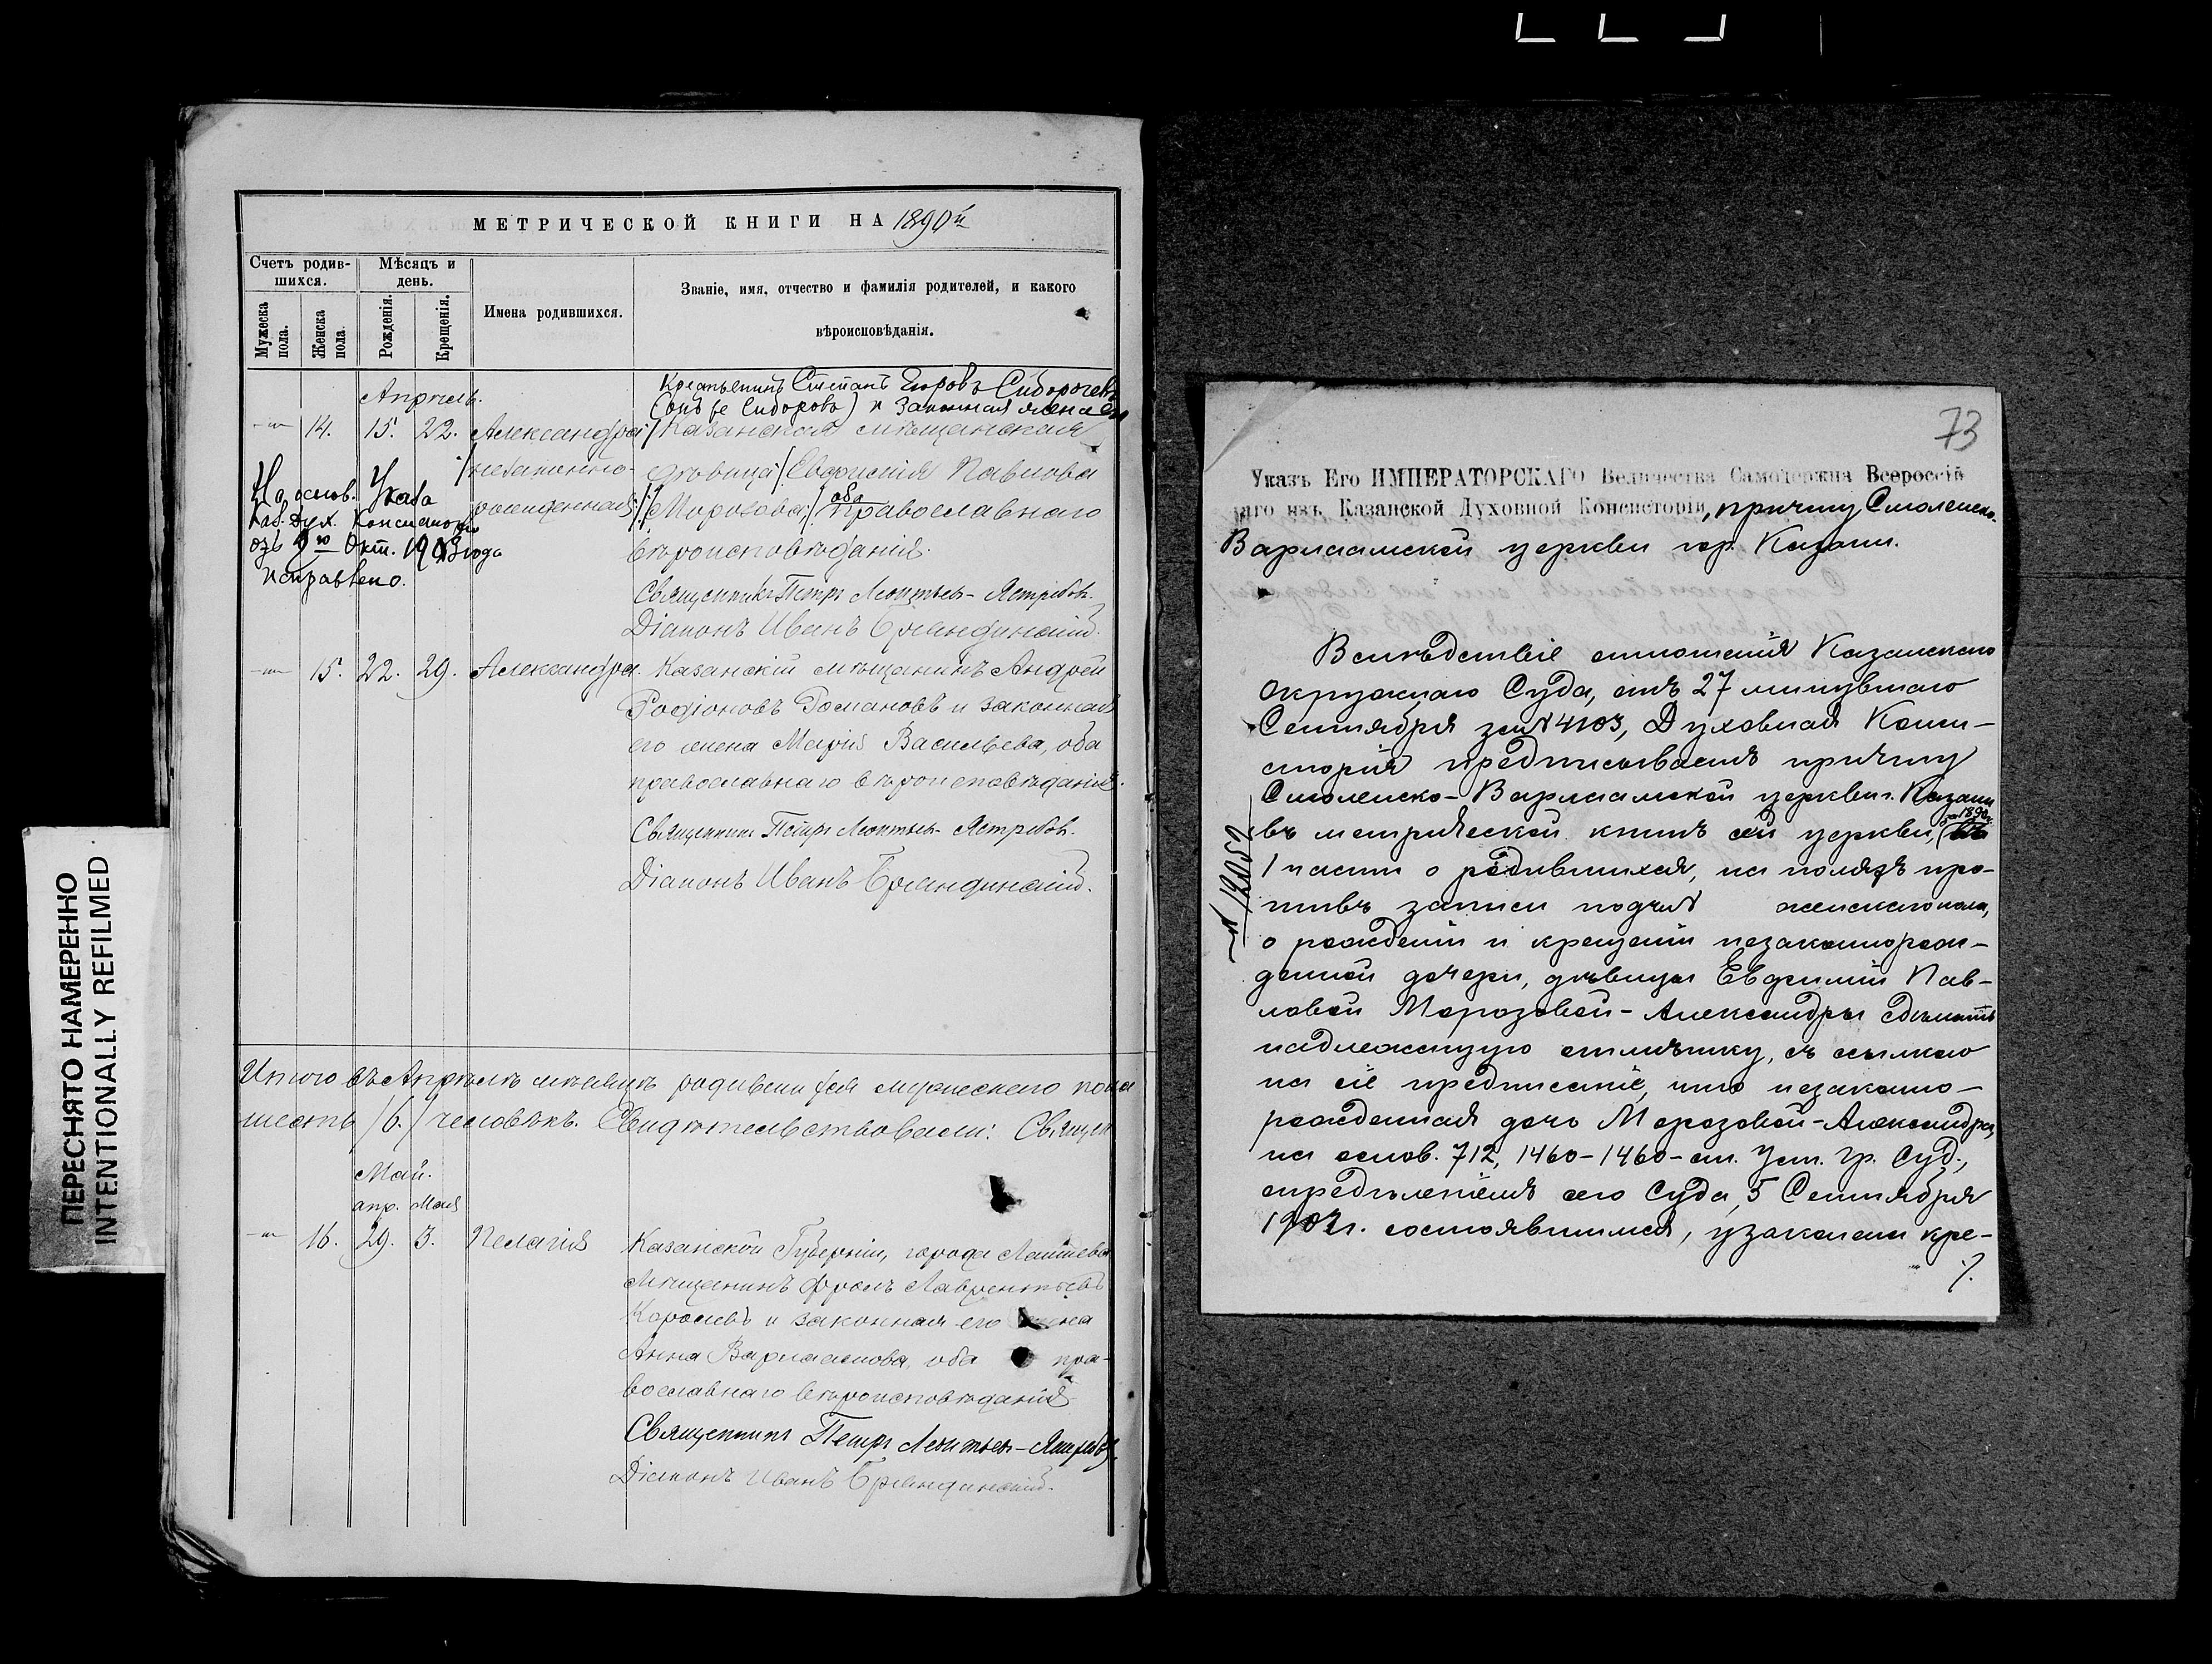 МЕТРИЧЕСКОЙ КНИГИ НА 1890й
Счетъ родив-
шихся.
Мѣсяцъ и
день.
Мужеска
пола.
Женска
пола
Рожденія.
Крещенія.
Имена родившихся.
Званіе, имя, отчество и фамилія родителей, и какого
вѣроисповѣданія.
Апрѣль.
Крестьянинъ Степанъ Егоровъ Сидорочевъ
(онъ же Сидоровъ) и законная жена его
14. 15. 22. Александра /Казанская мѣщанская
/незаконно- дѣвица/ Евфимія Павлова
рожденная/ /Морозова/ оба православнаго
вѣроисповѣданія.
На основ. Указа
Каз. Дух. Консисторіи
отъ 9го Окт. 1903 года
исправлено.
Священникъ Петръ Леонтьевъ-Ястребовъ.
Діаконъ Иванъ
15. 22. 29. Александра. Казанскій мѣщанинъ Андрей
Родіоновъ Романовъ и законная
его жена Марія Васильева, оба
православнаго вѣроисповѣданія.
Священникъ Петръ Леонтьевъ-Ястребовъ.
Діаконъ Иванъ
Итого въ Апрѣлѣ мѣсяцѣ родившихся мужескаго пола
шесть /6./ человѣкъ. Свидѣтельствовали: Священ
Май.
апр. Мая
16. 29. 3. Пелагія Казанской Губерніи, города Лаишева
Мѣщанинъ Фролъ Лаврентьевъ
и законная его жена
Анна Варлаамова, оба пра-
вославнаго вѣроисповѣданія
Священникъ Петръ Леонтьевъ-Ястребовъ.
Діаконъ Иванъ
ПЕРЕСНЯТО НАМЕРЕННО
INTENTIONALLY REFILMED
73
Указъ Его ИМПЕРАТОРСКАГО Величества Самодержца Всероссій
скаго изъ Казанской Духовной Консисторіи, причту Смоленско-
Варлаамской церкви гор. Казани.
Вслѣдствіе отношенія Казанскаго
Окружнаго Суда, отъ 27 минувшаго
Сентября за № 4103, Духовная Конси-
сторія предписываетъ причту
Смоленско-Варлаамской церкви г. Казани
въ метрической книгѣ сей церкви, за 1890 г.
1 части о родившихся, на поляхъ про-
тивъ записи подъ № женскаго пола,
о рожденіи и крещеніи незаконнорож-
денной дочери, дѣвицы Евфиміи Пав-
ловой Морозовой-Александры сдѣлать
надлежащую отмѣтку, съ ссылкою
на сіе предписаніе, что незаконно-
рожденная дочь Морозовой-Александра,
на основ. 712, 1460-1460-ст. Уст. Гр. Суд.,
опредѣленіемъ сего Суда, 5 Сентября
1903 г. состоявшимся, узаконена кре-
№ 12052